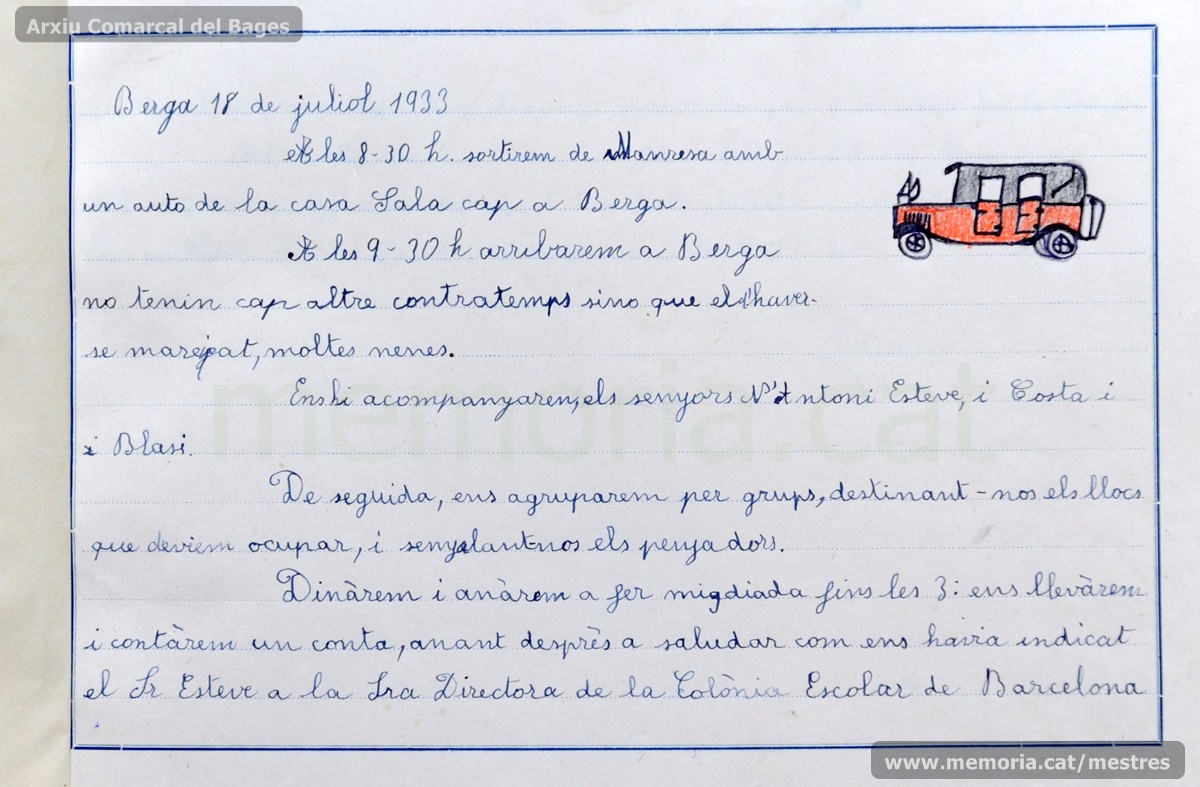 Arxiu Comarcal del Bages
Berga 18 de juliol 1933
A les 8-30 h. sortirem de Manresa amb
un auto de la casa Sala cap a Berga.
A les 9-30 h arribarem a Berga
no tenin cap altre contratemps sino que el d'haver-
se marejat, moltes nenes.
Ens hi acompanyaren, els senyors N'Antoni Esteve, i Costa i
i Blasi.
De seguida, ens agruparem per grups, destinant-nos els llocs
que deviem ocupar, i senyalantnos els penjadors.
Dinàrem i anàrem a fer migdiada fins les 3: ens llevàrem
i contàrem un conta, anant desprès a saludar com ens havia indicat
el Sr Esteve a la Sra Directora de la Colònia Escolar de Barcelona
memoria.cat
www.memoria.cat/mestres